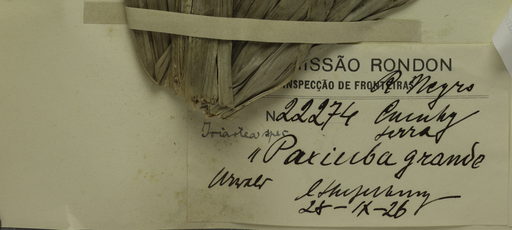 MISSÃO RONDON
INSPECÇÃO DE FRONTEIRAS R. Negro
N 22274
Iriartea spec
"Paxiuba grande
Urwald
28-IX-26